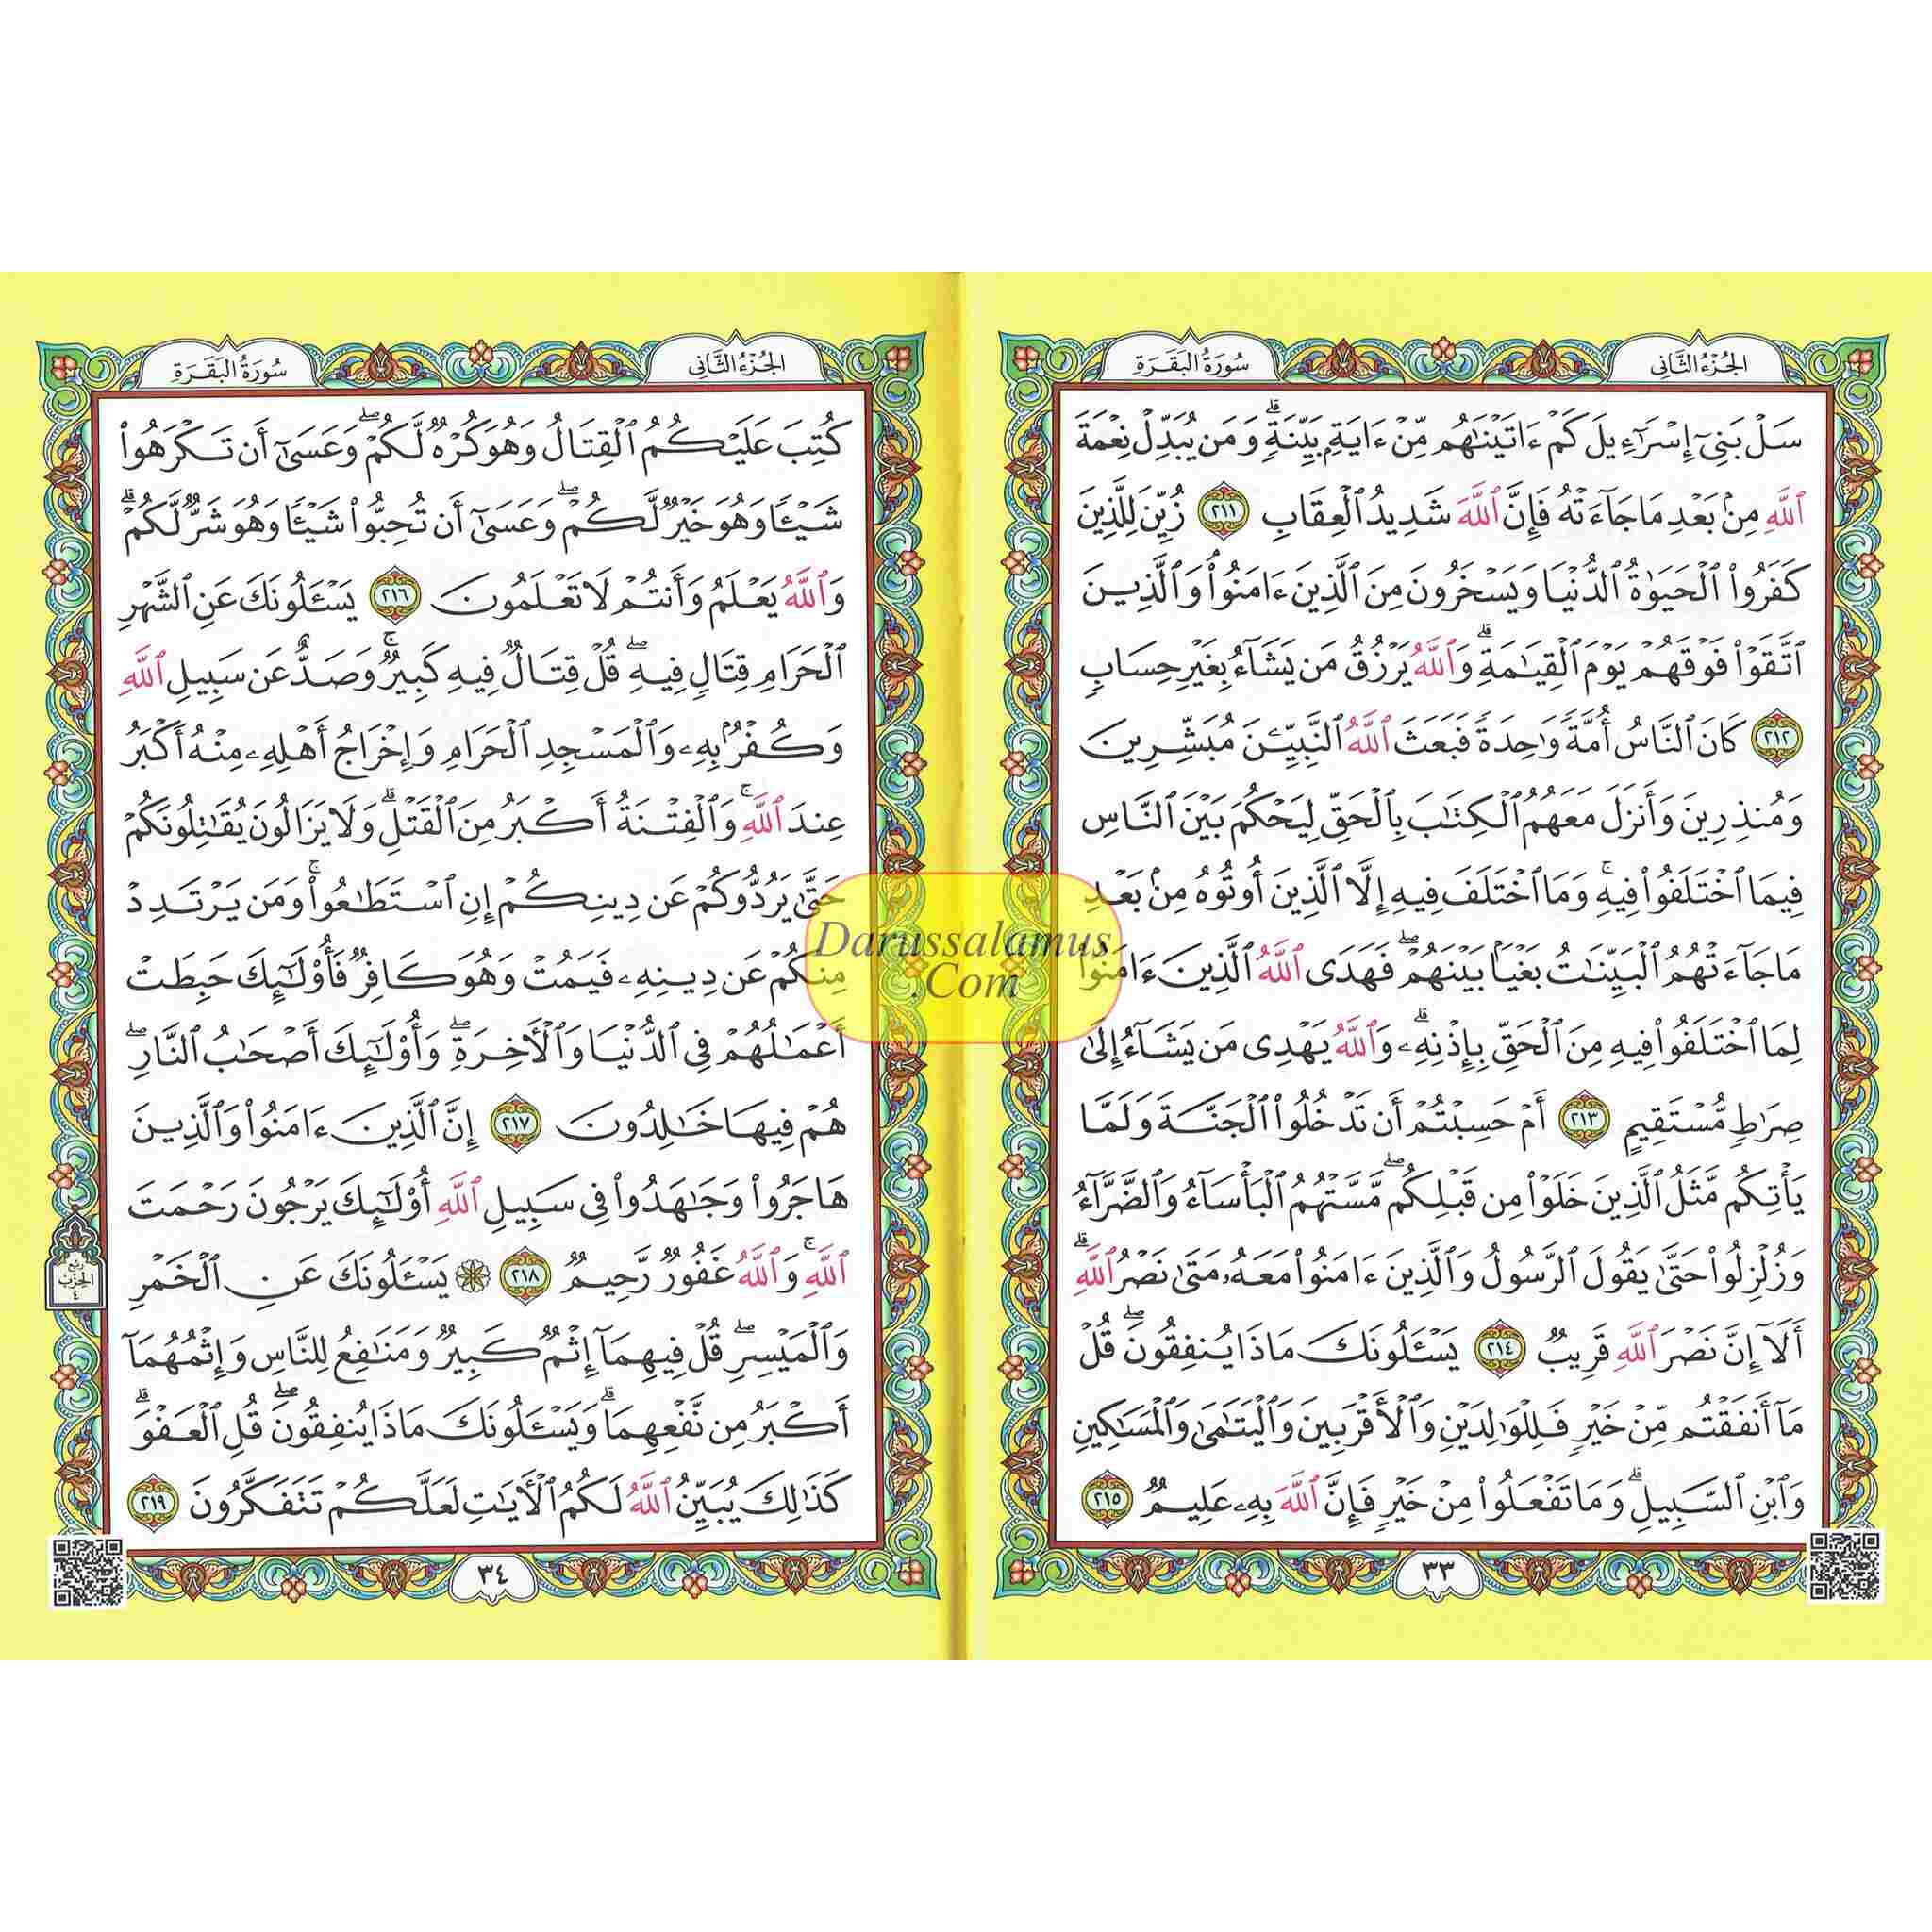 الجُزْءُ الثَّانِي
سُورَةُ البَقَرَةِ
سَلۡ بَنِيٓ إِسۡرَٰٓءِيلَ كَمۡ ءَاتَيۡنَٰهُم مِّنۡ ءَايَةِۭ بَيِّنَةٖۗ وَمَن يُبَدِّلۡ نِعۡمَةَ
ٱللَّهِ مِنۢ بَعۡدِ مَا جَآءَتۡهُ فَإِنَّ ٱللَّهَ شَدِيدُ ٱلۡعِقَابِ ٢١١ زُيِّنَ لِلَّذِينَ
كَفَرُواْ ٱلۡحَيَوٰةُ ٱلدُّنۡيَا وَيَسۡخَرُونَ مِنَ ٱلَّذِينَ ءَامَنُواْۘ وَٱلَّذِينَ
ٱتَّقَوۡاْ فَوۡقَهُمۡ يَوۡمَ ٱلۡقِيَٰمَةِۗ وَٱللَّهُ يَرۡزُقُ مَن يَشَآءُ بِغَيۡرِ حِسَابٖ
٢١٢ كَانَ ٱلنَّاسُ أُمَّةٗ وَٰحِدَةٗ فَبَعَثَ ٱللَّهُ ٱلنَّبِيِّـۧنَ مُبَشِّرِينَ
وَمُنذِرِينَ وَأَنزَلَ مَعَهُمُ ٱلۡكِتَٰبَ بِٱلۡحَقِّ لِيَحۡكُمَ بَيۡنَ ٱلنَّاسِ
فِيمَا ٱخۡتَلَفُواْ فِيهِۚ وَمَا ٱخۡتَلَفَ فِيهِ إِلَّا ٱلَّذِينَ أُوتُوهُ مِنۢ بَعۡدِ
مَا جَآءَتۡهُمُ ٱلۡبَيِّنَٰتُ بَغۡيَۢا بَيۡنَهُمۡۖ فَهَدَى ٱللَّهُ ٱلَّذِينَ ءَامَنُواْ
لِمَا ٱخۡتَلَفُواْ فِيهِ مِنَ ٱلۡحَقِّ بِإِذۡنِهِۦۗ وَٱللَّهُ يَهۡدِي مَن يَشَآءُ إِلَىٰ
صِرَٰطٖ مُّسۡتَقِيمٍ ٢١٣ أَمۡ حَسِبۡتُمۡ أَن تَدۡخُلُواْ ٱلۡجَنَّةَ وَلَمَّا
يَأۡتِكُم مَّثَلُ ٱلَّذِينَ خَلَوۡاْ مِن قَبۡلِكُمۖ مَّسَّتۡهُمُ ٱلۡبَأۡسَآءُ وَٱلضَّرَّآءُ
وَزُلۡزِلُواْ حَتَّىٰ يَقُولَ ٱلرَّسُولُ وَٱلَّذِينَ ءَامَنُواْ مَعَهُۥ مَتَىٰ نَصۡرُ ٱللَّهِۗ
أَلَآ إِنَّ نَصۡرَ ٱللَّهِ قَرِيبٞ ٢١٤ يَسۡـَٔلُونَكَ مَاذَا يُنفِقُونَۖ قُلۡ
مَآ أَنفَقۡتُم مِّنۡ خَيۡرٖ فَلِلۡوَٰلِدَيۡنِ وَٱلۡأَقۡرَبِينَ وَٱلۡيَتَٰمَىٰ وَٱلۡمَسَٰكِينِ
وَٱبۡنِ ٱلسَّبِيلِۗ وَمَا تَفۡعَلُواْ مِنۡ خَيۡرٖ فَإِنَّ ٱللَّهَ بِهِۦ عَلِيمٞ ٢١٥
٣٣
الجُزْءُ الثَّانِي
سُورَةُ البَقَرَةِ
كُتِبَ عَلَيۡكُمُ ٱلۡقِتَالُ وَهُوَ كُرۡهٞ لَّكُمۡۖ وَعَسَىٰٓ أَن تَكۡرَهُواْ
شَيۡـٔٗا وَهُوَ خَيۡرٞ لَّكُمۡۖ وَعَسَىٰٓ أَن تُحِبُّواْ شَيۡـٔٗا وَهُوَ شَرّٞ لَّكُمۡۗ
وَٱللَّهُ يَعۡلَمُ وَأَنتُمۡ لَا تَعۡلَمُونَ ٢١٦ يَسۡـَٔلُونَكَ عَنِ ٱلشَّهۡرِ
ٱلۡحَرَامِ قِتَالٖ فِيهِۖ قُلۡ قِتَالٞ فِيهِ كَبِيرٞۚ وَصَدٌّ عَن سَبِيلِ ٱللَّهِ
وَكُفۡرُۢ بِهِۦ وَٱلۡمَسۡجِدِ ٱلۡحَرَامِ وَإِخۡرَاجُ أَهۡلِهِۦ مِنۡهُ أَكۡبَرُ
عِندَ ٱللَّهِۚ وَٱلۡفِتۡنَةُ أَكۡبَرُ مِنَ ٱلۡقَتۡلِۗ وَلَا يَزَالُونَ يُقَٰتِلُونَكُمۡ
حَتَّىٰ يَرُدُّوكُمۡ عَن دِينِكُمۡ إِنِ ٱسۡتَطَٰعُواْۚ وَمَن يَرۡتَدِدۡ
مِنكُمۡ عَن دِينِهِۦ فَيَمُتۡ وَهُوَ كَافِرٞ فَأُوْلَٰٓئِكَ حَبِطَتۡ
أَعۡمَٰلُهُمۡ فِي ٱلدُّنۡيَا وَٱلۡأٓخِرَةِۖ وَأُوْلَٰٓئِكَ أَصۡحَٰبُ ٱلنَّارِۖ
هُمۡ فِيهَا خَٰلِدُونَ ٢١٧ إِنَّ ٱلَّذِينَ ءَامَنُواْ وَٱلَّذِينَ
هَاجَرُواْ وَجَٰهَدُواْ فِي سَبِيلِ ٱللَّهِ أُوْلَٰٓئِكَ يَرۡجُونَ رَحۡمَتَ
ٱللَّهِۚ وَٱللَّهُ غَفُورٞ رَّحِيمٞ ٢١٨ ۞ يَسۡـَٔلُونَكَ عَنِ ٱلۡخَمۡرِ
وَٱلۡمَيۡسِرِۖ قُلۡ فِيهِمَآ إِثۡمٞ كَبِيرٞ وَمَنَٰفِعُ لِلنَّاسِ وَإِثۡمُهُمَآ
أَكۡبَرُ مِن نَّفۡعِهِمَاۗ وَيَسۡـَٔلُونَكَ مَاذَا يُنفِقُونَۖ قُلِ ٱلۡعَفۡوَۗ
كَذَٰلِكَ يُبَيِّنُ ٱللَّهُ لَكُمُ ٱلۡأٓيَٰتِ لَعَلَّكُمۡ تَتَفَكَّرُونَ ٢١٩
ربع
الحزب
٤
٣٤
Darussalamus
.Com